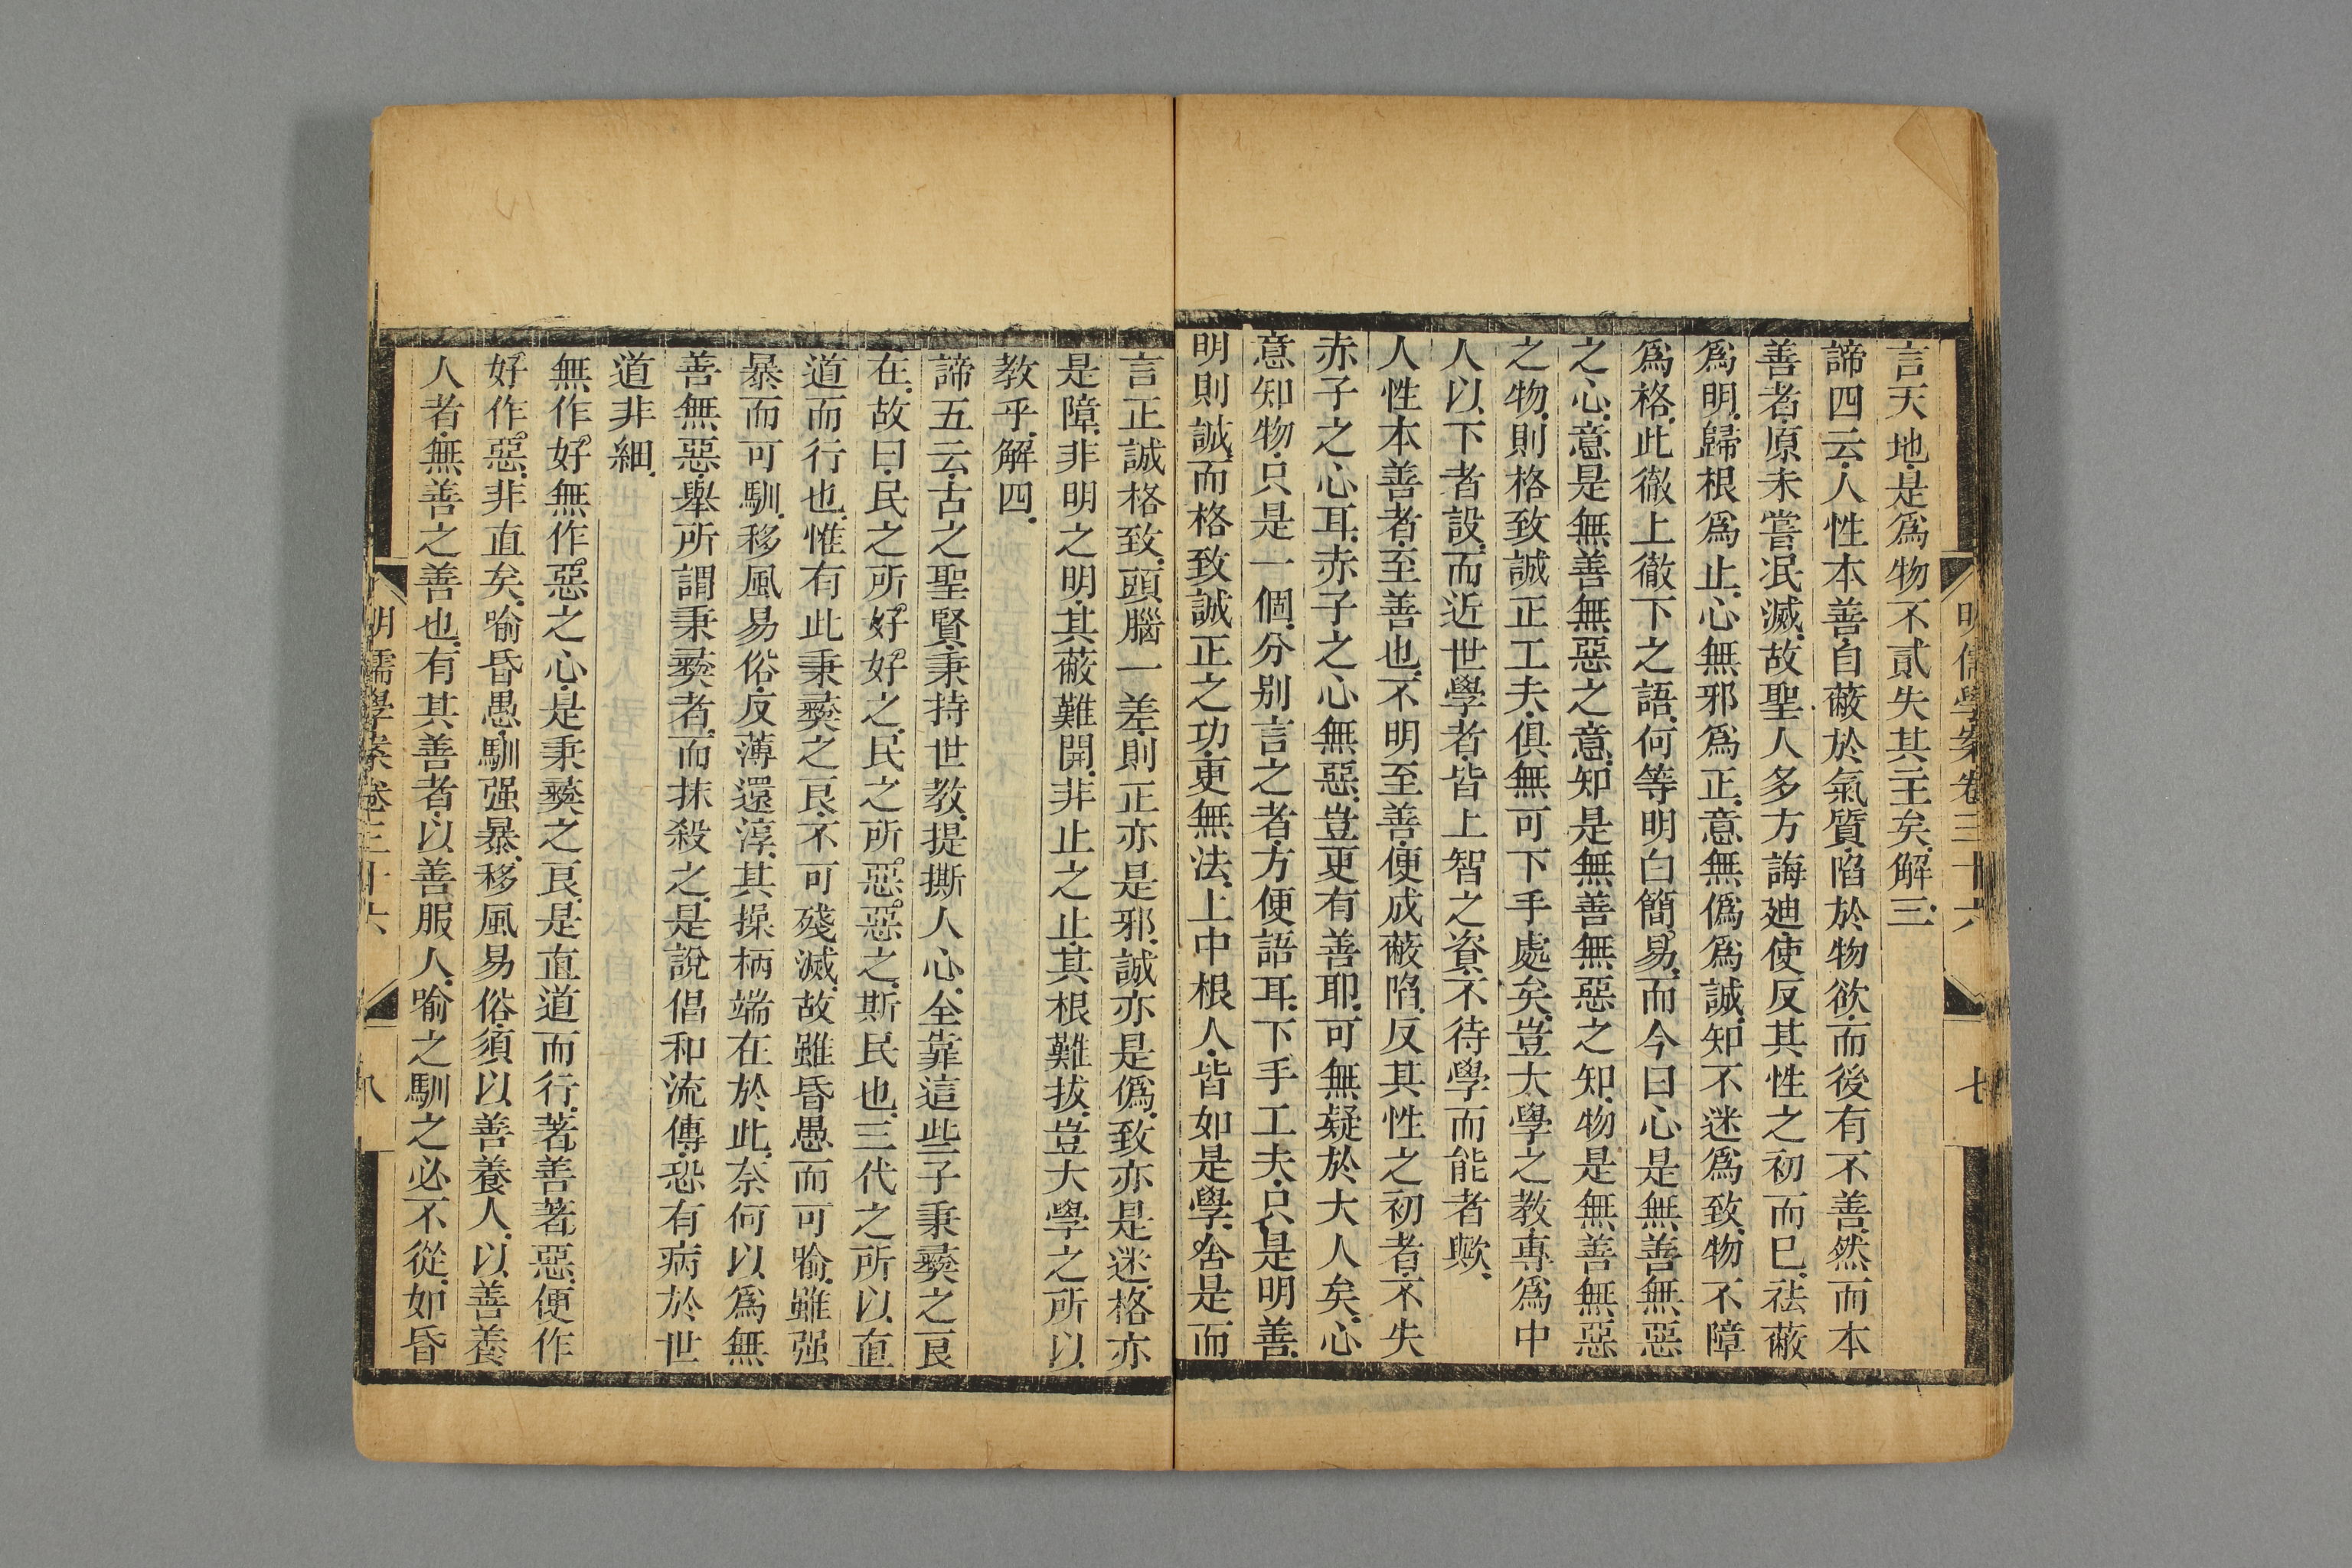 明儒學案卷三十六　七
言天地是爲物不貳失其主矣解三
諦四云人性本善自蔽於氣質陷於物欲而後有不善然而本
善者原未嘗泯滅故聖人多方誨廸使反其性之初而已祛蔽
爲明歸根爲止心無邪爲正意無僞爲誠知不迷爲致物不障
爲格此徹上徹下之語何等明白簡易而今曰心是無善無惡
之心意是無善無惡之意知是無善無惡之知物是無善無惡
之物則格致誠正工夫俱無可下手處矣豈大學之教專爲中
人以下者設而近世學者皆上智之資不待學而能者歟
人性本善者至善也不明至善便成蔽陷反其性之初者不失
赤子之心耳赤子之心無惡豈更有善耶可無疑於大人矣心
意知物只是一個分别言之者方便語耳下手工夫只是明善
明則誠而格致誠正之功更無法上中根人皆如是學舍是而
言正誠格致頭腦一差則正亦是邪誠亦是僞致亦是迷格亦
是障非明之明其蔽難開非止之止其根難拔豈大學之所以
教乎解四
諦五云古之聖賢秉持世教提撕人心全靠這些子秉彝之良
在故曰民之所好好之民之所惡惡之斯民也三代之所以直
道而行也惟有此秉彝之良不可殘滅故雖昏愚而可喻雖强
暴而可馴移風易俗反薄還淳其操柄端在於此奈何以爲無
善無惡舉所謂秉彝者而抹殺之是說倡和流傳恐有病於世
道非細
無作好無作惡之心是秉彝之良是直道而行著善著惡便作
好作惡非直矣喻昏愚馴强暴移風易俗須以善養人以善養
人者無善之善也有其善者以善服人喻之馴之必不從如昏
明儒學案卷三十六　八